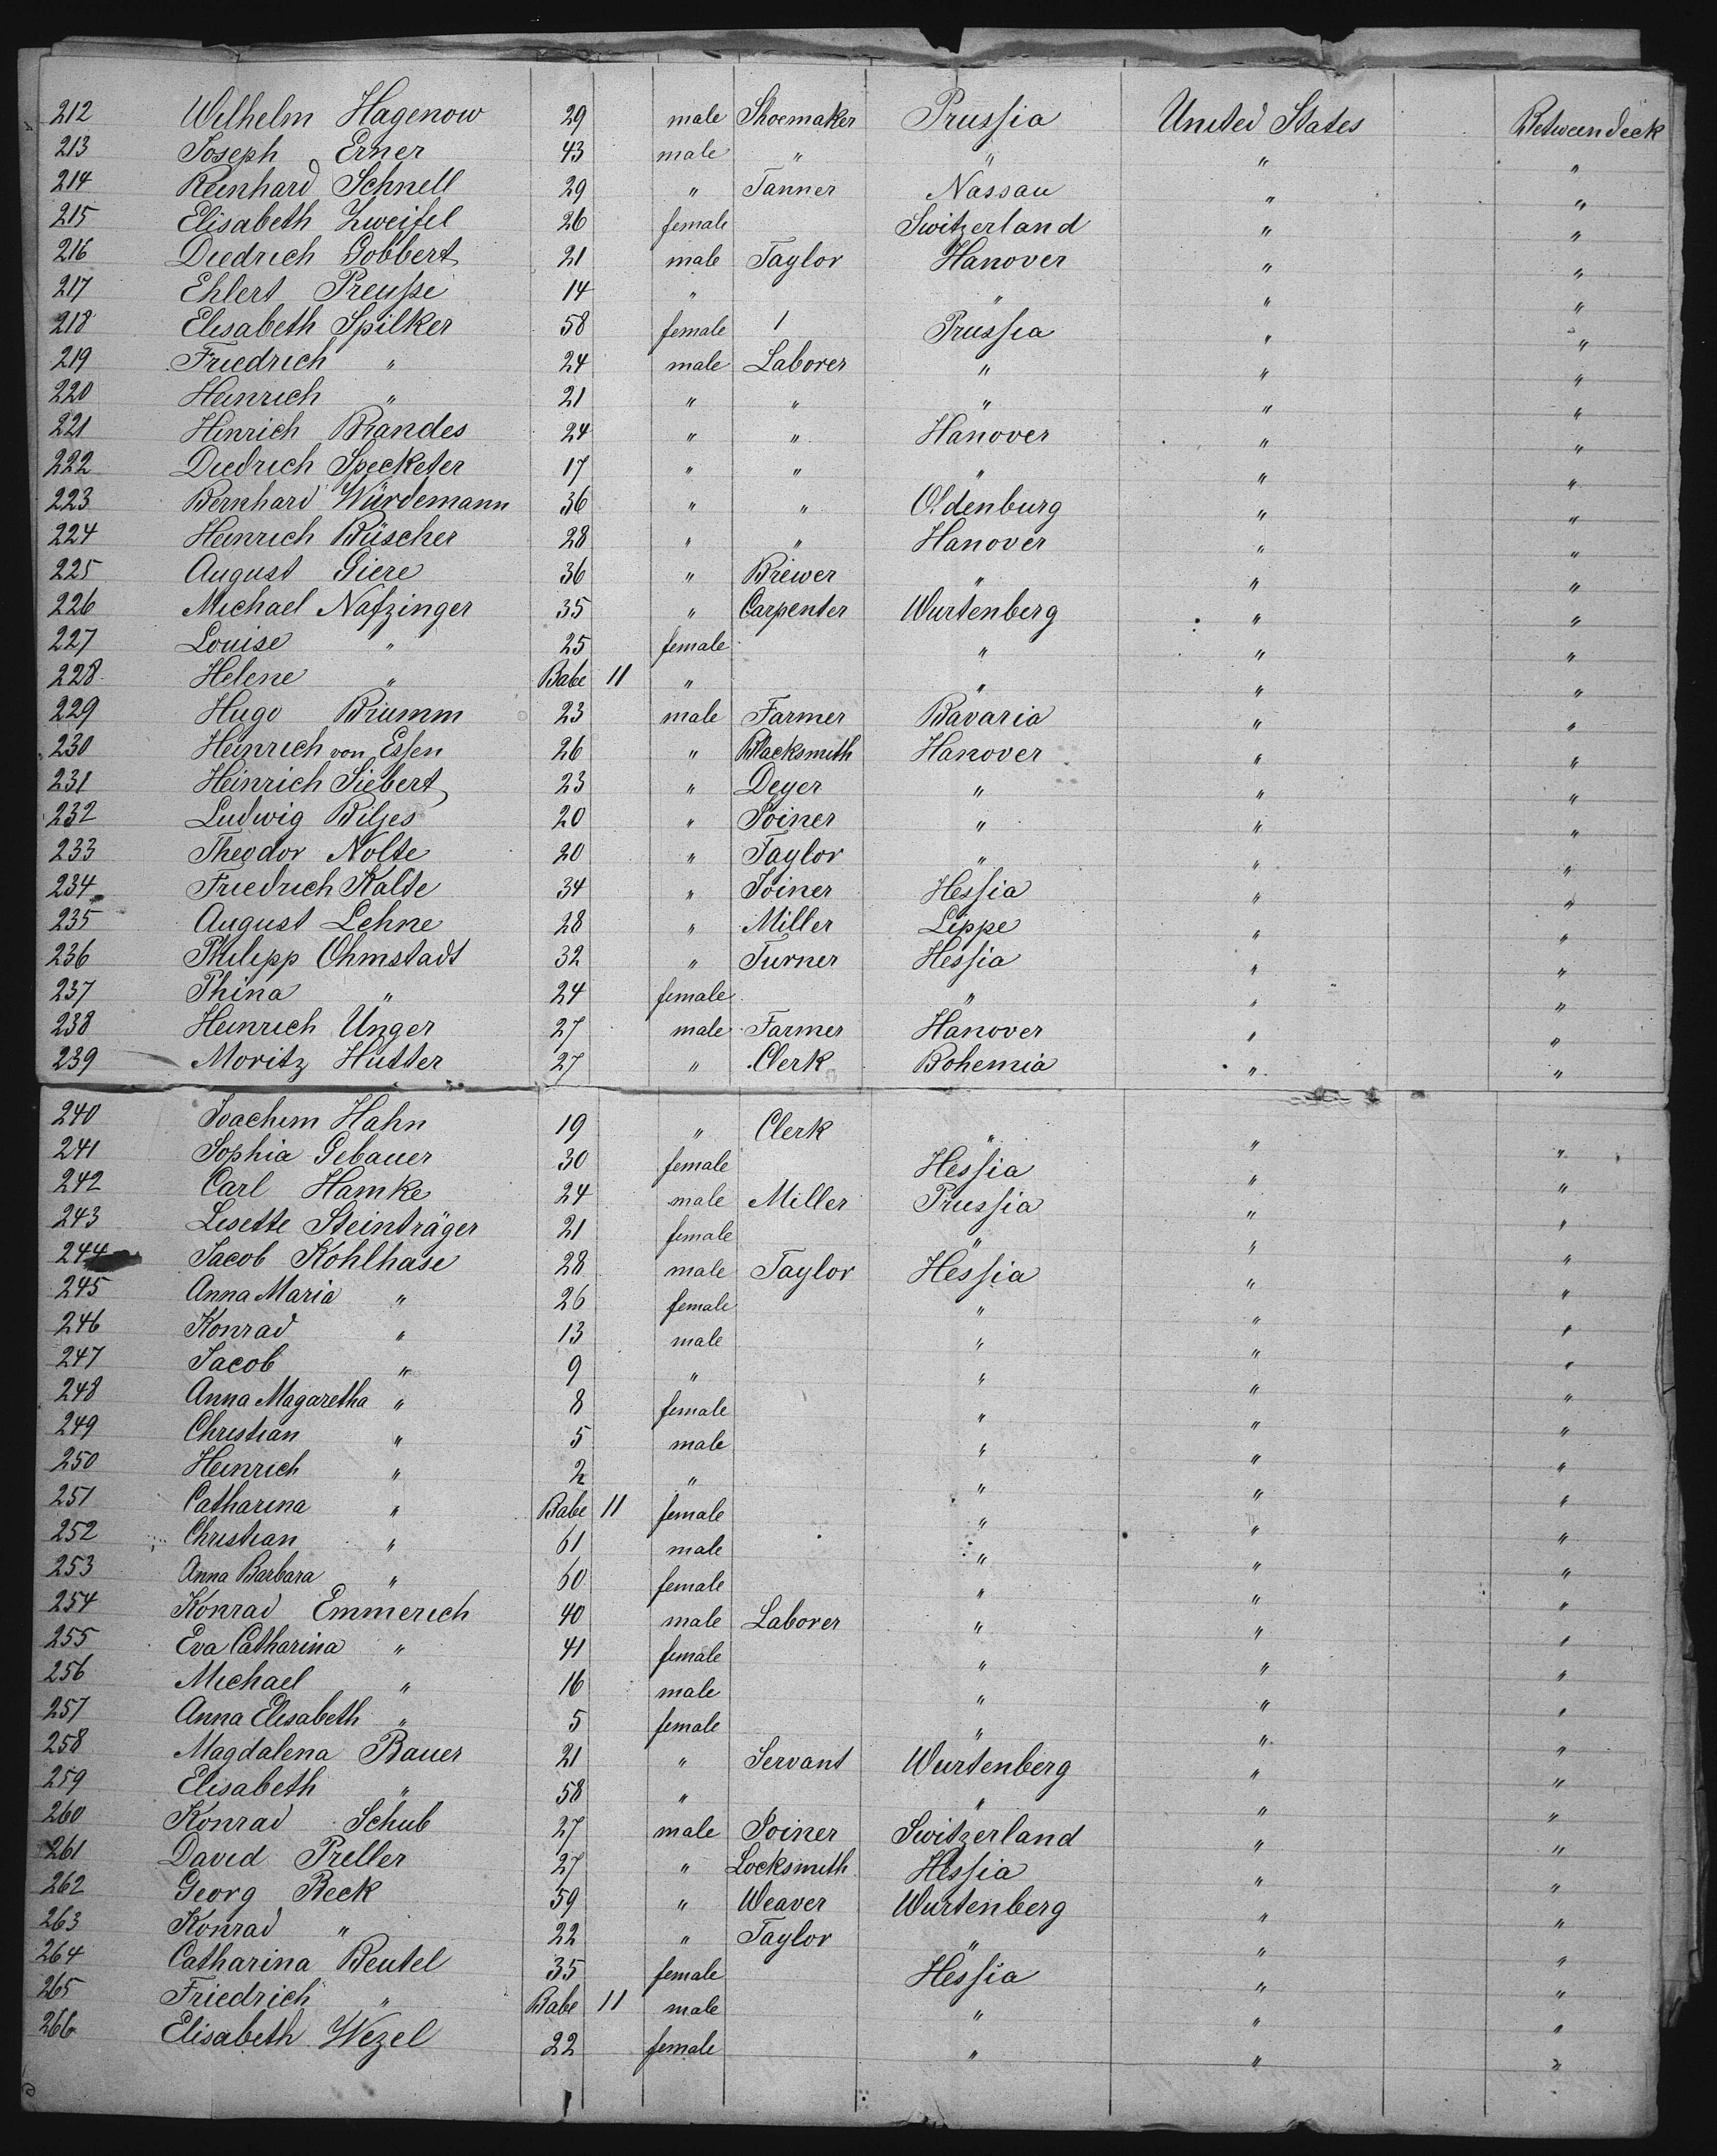 212 Wilhelm Hagenow 29 male Shoemaker Prussia United States Betweendeck
213 Joseph Erner 43 male " " " "
214 Reinhard Schnell 29 " Tanner Nassau " "
215 Elisabeth Zweifel 26 female Switzerland " "
216 Diedrich Gobbert 21 male Taylor Hanover " "
217 Ehlert Preusse 14 " " " "
218 Elisabeth Spilker 58 female 1 Prussia " "
219 Friedrich " 24 male Laborer " " "
220 Heinrich " 21 " " " " "
221 Hinrich Brandes 24 " " Hanover " "
222 Diedrich Specketer 17 " " " " "
223 Bernhard Würdemann 36 " " Oldenburg " "
224 Heinrich Büscher 28 " " Hanover " "
225 August Giere 36 " Brewer " " "
226 Michael Nafzinger 35 " Carpenter Wurtenberg " "
227 Louise " 25 female " " "
228 Helene " Babe 11 " " " "
229 Hugo Brumm 23 male Farmer Bavaria " "
230 Heinrich von Essen 26 " Blacksmith Hanover " "
231 Heinrich Siebert 23 " Deyer " " "
232 Ludwig Biljes 20 " Joiner " " "
233 Theodor Nolte 20 " Taylor " " "
234 Friedrich Kalte 34 " Joiner Hessia " "
235 August Lehne 28 " Miller Lippe " "
236 Philipp Ohmstadt 32 " Turner Hessia " "
237 Phina " 24 female " " "
238 Heinrich Unger 27 male Farmer Hanover " "
239 Moritz Hutter 27 " Clerk Bohemia " "
240 Joachim Hahn 19 " Clerk " " "
241 Sophia Gebauer 30 female Hessia " "
242 Carl Hamke 24 male Miller Prussia " "
243 Lisette Steinträger 21 female " " "
244 Jacob Kohlhase 28 male Taylor Hessia " "
245 Anna Maria " 26 female " " "
246 Konrad " 13 male " " "
247 Jacob " 9 " " " "
248 Anna Magaretha " 8 female " " "
249 Christian " 5 male " " "
250 Heinrich " 2 " " " "
251 Catharina " Babe 11 female " " "
252 Christian " 61 male " " "
253 Anna Barbara " 60 female " " "
254 Konrad Emmerich 40 male Laborer " " "
255 Eva Catharina " 41 female " " "
256 Michael " 16 male " " "
257 Anna Elisabeth " 5 female " " "
258 Magdalena Bauer 21 " Servant Wurtenberg " "
259 Elisabeth " 58 " " " "
260 Konrad Schub 27 male Joiner Switzerland " "
261 David Preller 27 " Locksmith Hessia " "
262 Georg Beck 59 " Weaver Wurtenberg " "
263 Konrad " 22 " Taylor " " "
264 Catharina Beutel 35 female Hessia " "
265 Friedrich " Babe 11 male " " "
266 Elisabeth Wezel 22 female " " "